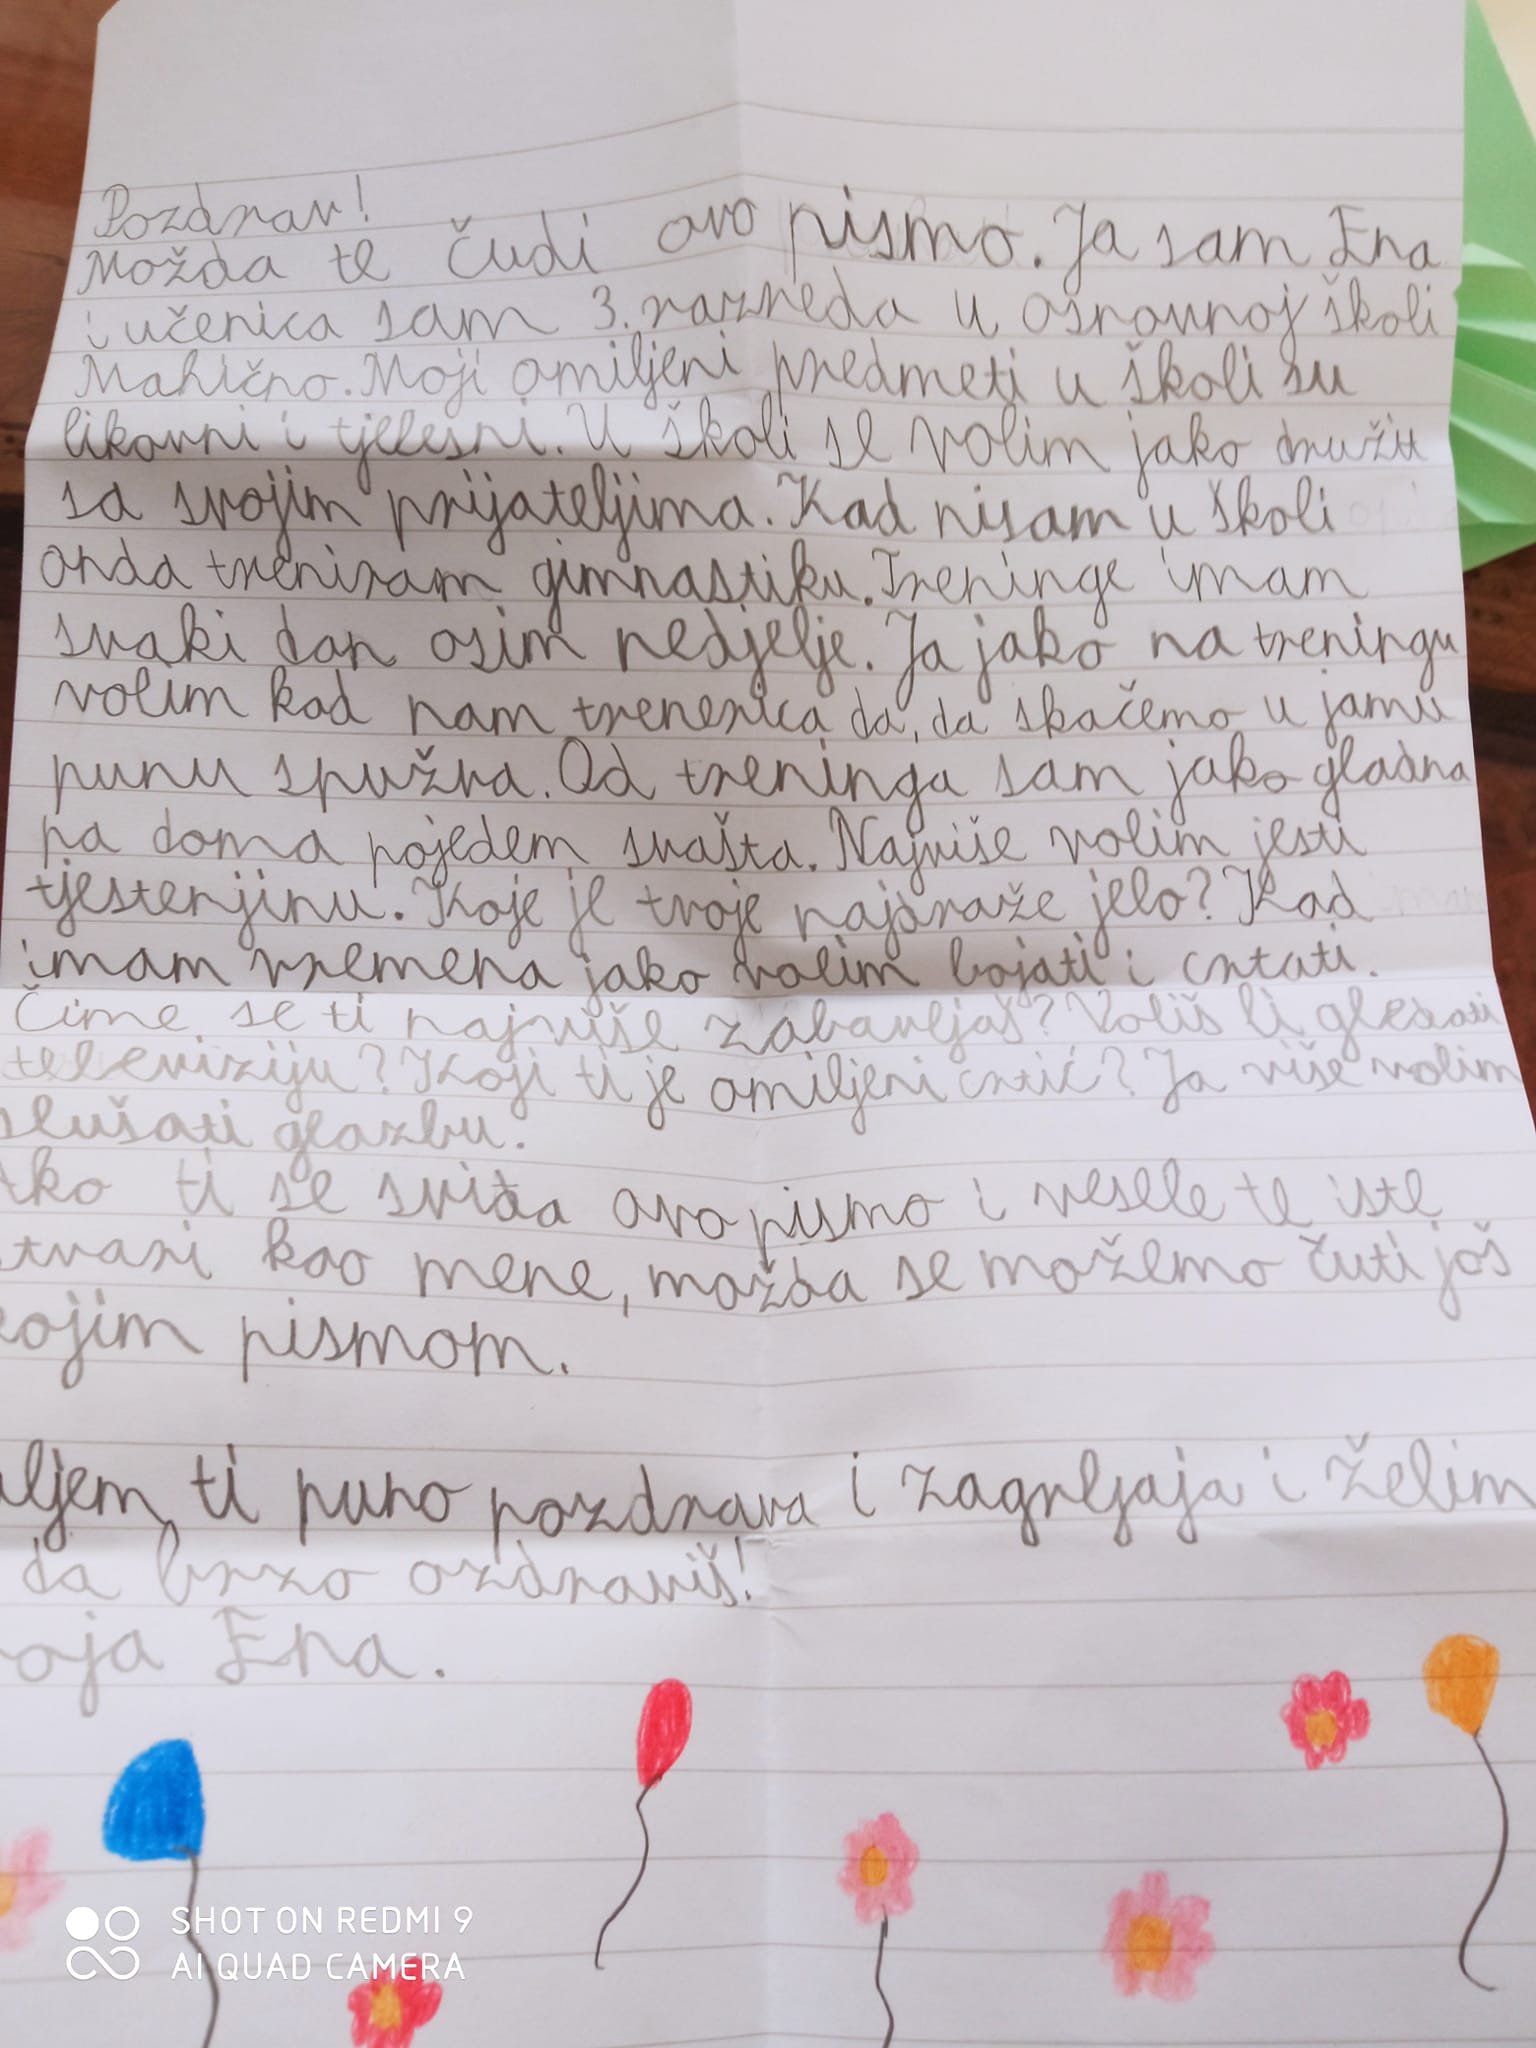 Pozdrav!
Možda te čudi ovo pismo. Ja sam Ena
i učenica sam 3. razreda u osnovnoj školi
Mahično. Moji omiljeni predmeti u školi su
likovni i tjelesni. U školi se volim jako družit
sa svojim prijateljima. Kad nisam u školi
onda treniram gimnastiku. Treninge imam
svaki dan osim nedjelje. Ja jako na treningu
volim kad nam trenerica da, da skačemo u jamu
punu spužva. Od treninga sam jako gladna
pa doma pojedem svašta. Najviše volim jesti
tjestenjinu. Koje je tvoje najdraže jelo? Kad
imam vremena jako volim bojati i crtati.
Čime se ti najviše zabavljaš? Voliš li gledati
televiziju? Koji ti je omiljeni crtić? Ja više volim
slušati glazbu.
Ako ti se sviđa ovo pismo i vesele te iste
stvari kao mene, možda se možemo čuti još
kojim pismom.
aljem ti puno pozdrava i zagrljaja i želim
da brzo ozdraviš!
voja Ena.
SHOT ON REDMI 9
AI QUAD CAMERA